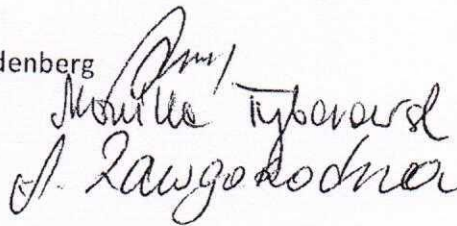 denberg
Monika Tyborowsk
A. Zawgorodna